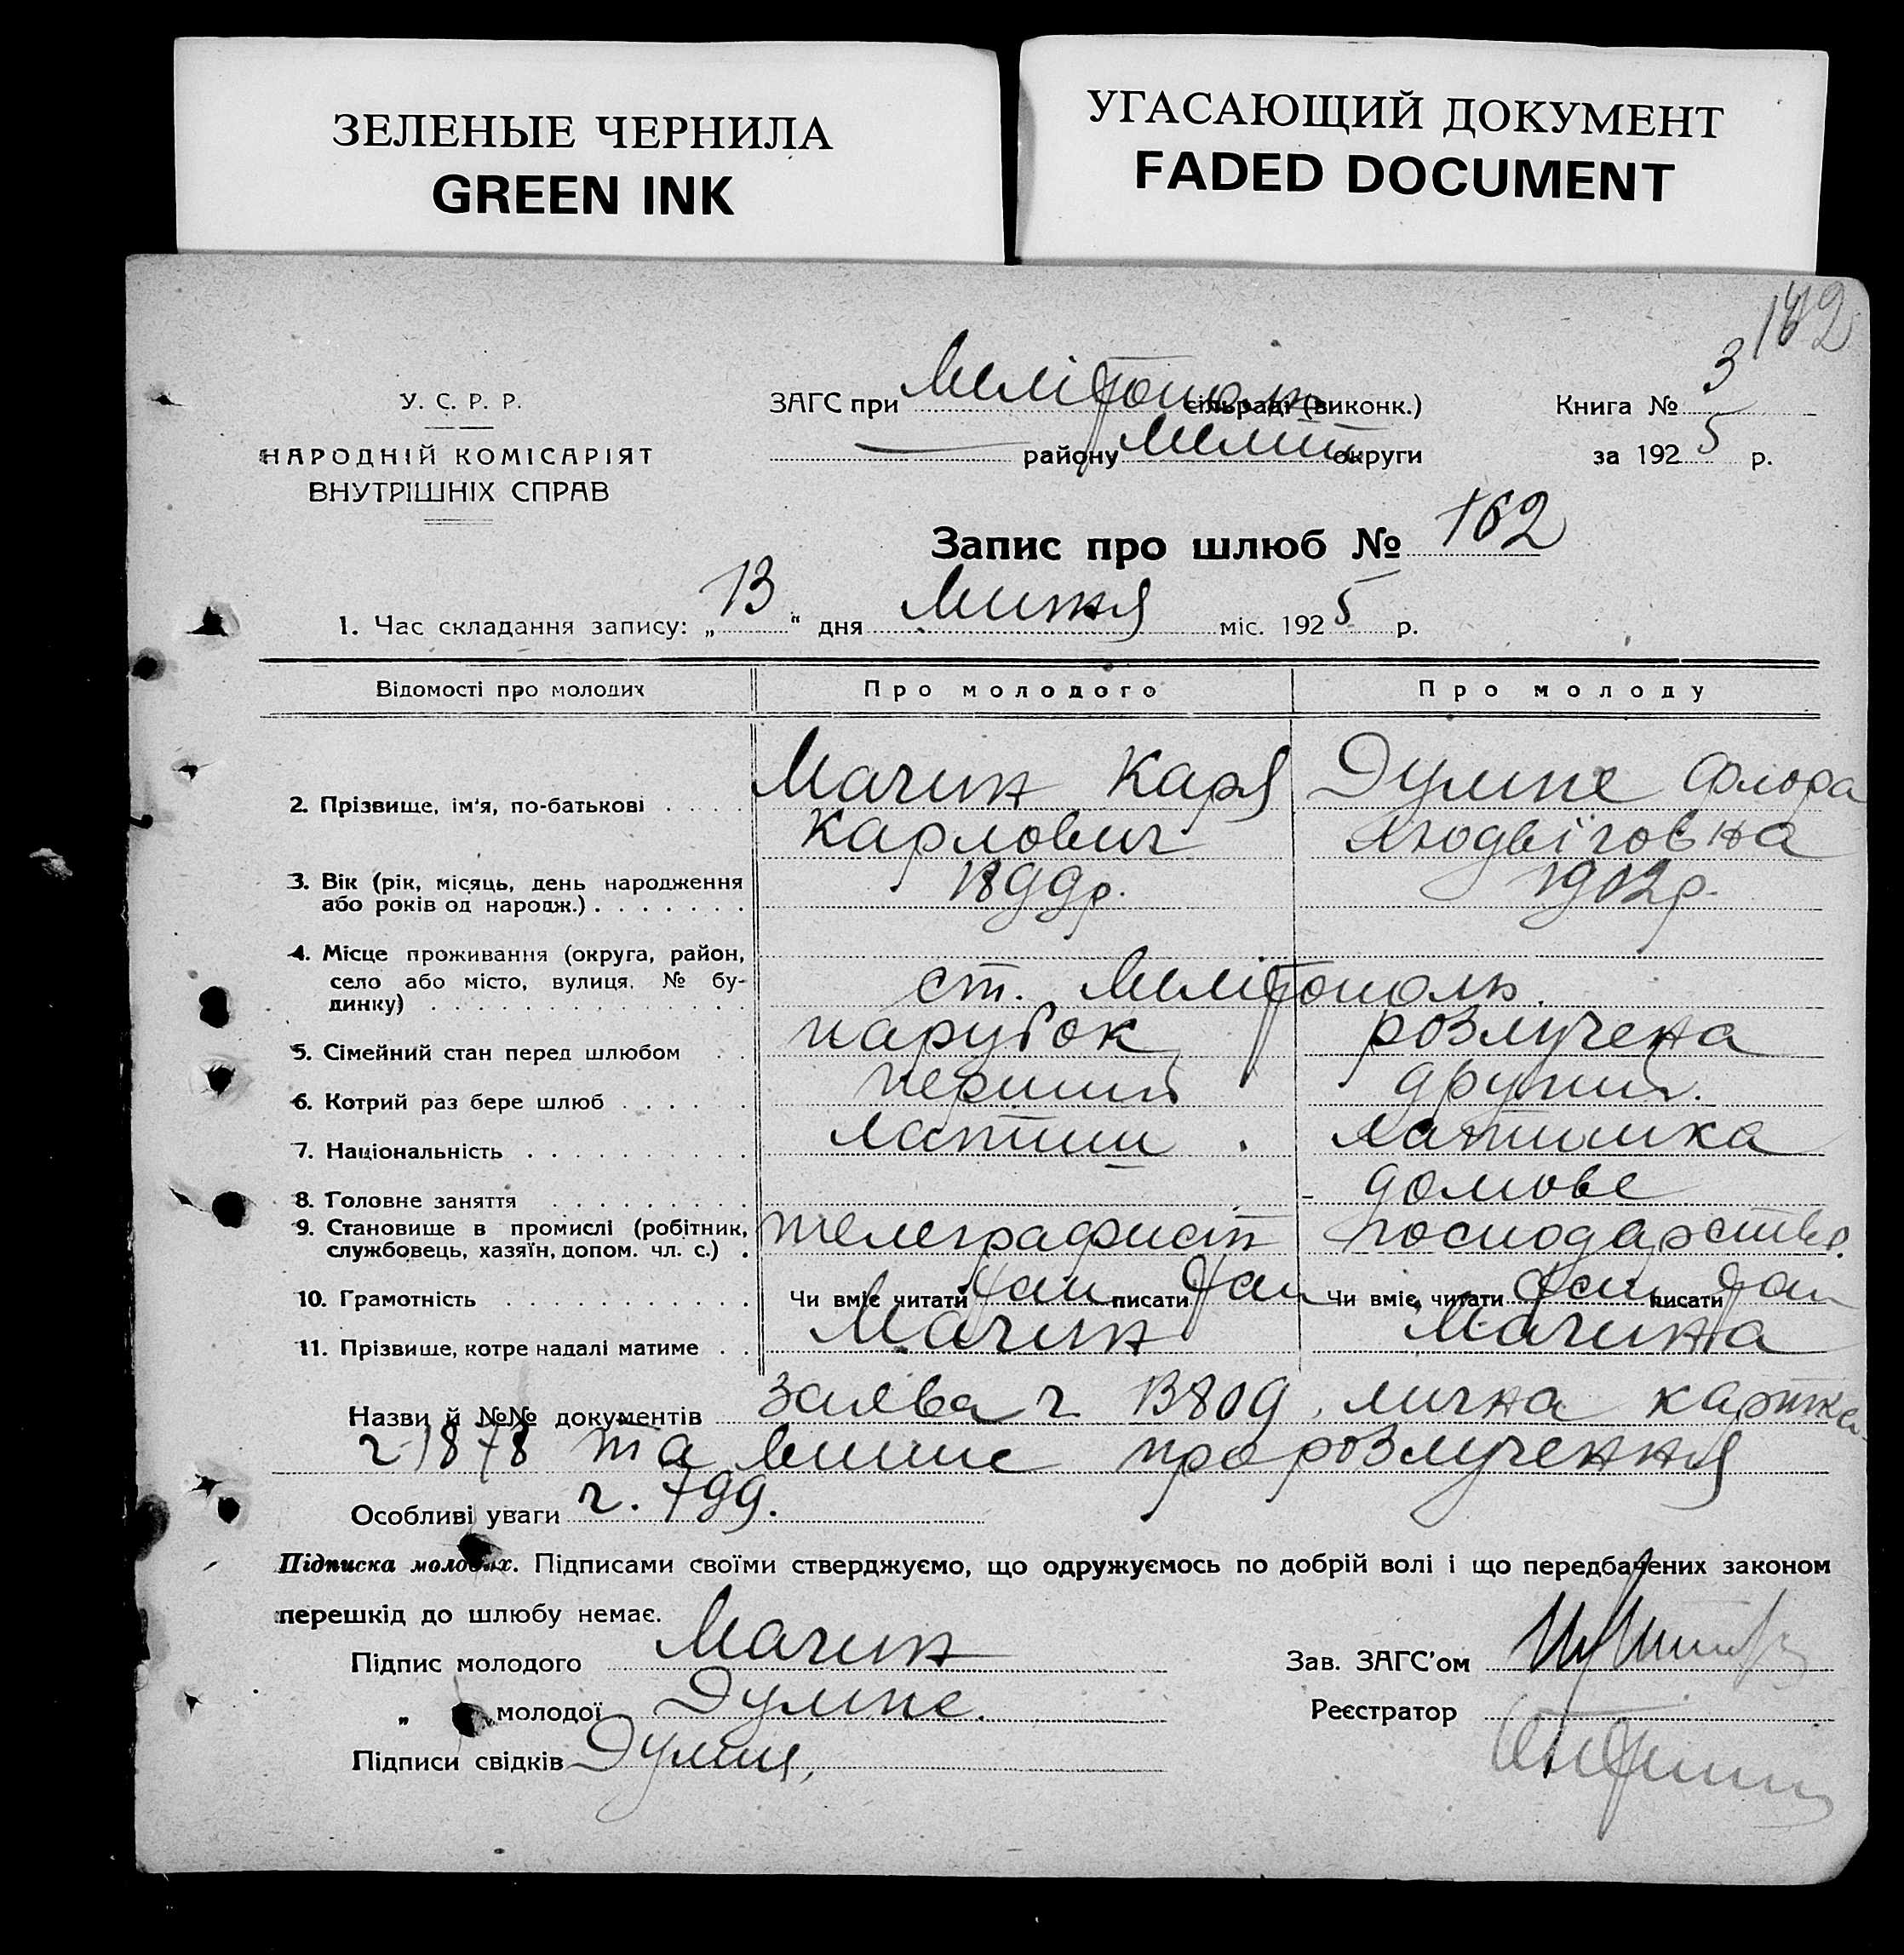 ЗЕЛЕНЫЕ ЧЕРНИЛА
GREEN INK
УГАСАЮЩИЙ ДОКУМЕНТ
FADED DOCUMENT
162
У. С. Р. Р.
НАРОДНІЙ КОМІСАРІЯТ
ВНУТРІШНІХ СПРАВ
ЗАГС при Мелітополь сільраді (виконк.)
району Меліт округи
Книга № 3
за 1925 р.
Запис про шлюб № 162
1. Час складання запису: „13“ дня Липня міс. 1925 р.
Відомості про молодих
Про молодого
Про молоду
2. Прізвище, ім'я, по-батькові
Мачин Карл Карлович
Думпе Флора Людвіговна
3. Вік (рік, місяць, день народження
або років од народж.)
1899р.
1902р.
4. Місце проживання (округа, район,
село або місто, вулиця, № бу-
динку)
ст. Мелітополь.
5. Сімейний стан перед шлюбом
парубок
розлучена
6. Котрий раз бере шлюб
перший
другий.
7. Національність
латиш
латишка
8. Головне заняття
домове
9. Становище в промислі (робітник,
службовець, хазяїн, допом. чл. с.)
телеграфист
господарство.
10. Грамотність
Чи вміє читати так писати так
Чи вміє читати так писати так
11. Прізвище, котре надалі матиме
Мачин
Мачина
Назви й №№ документів заява ч 13809, лична картка
ч 1878 та випис про розлучення
Особливі уваги ч. 799.
Підписка молодих. Підписами своїми стверджуємо, що одружуємось по добрій волі і що передбачених законом
перешкід до шлюбу немає.
Підпис молодого Мачин
„ молодої Думпе.
Підписи свідків
Зав. ЗАГС'ом
Реєстратор